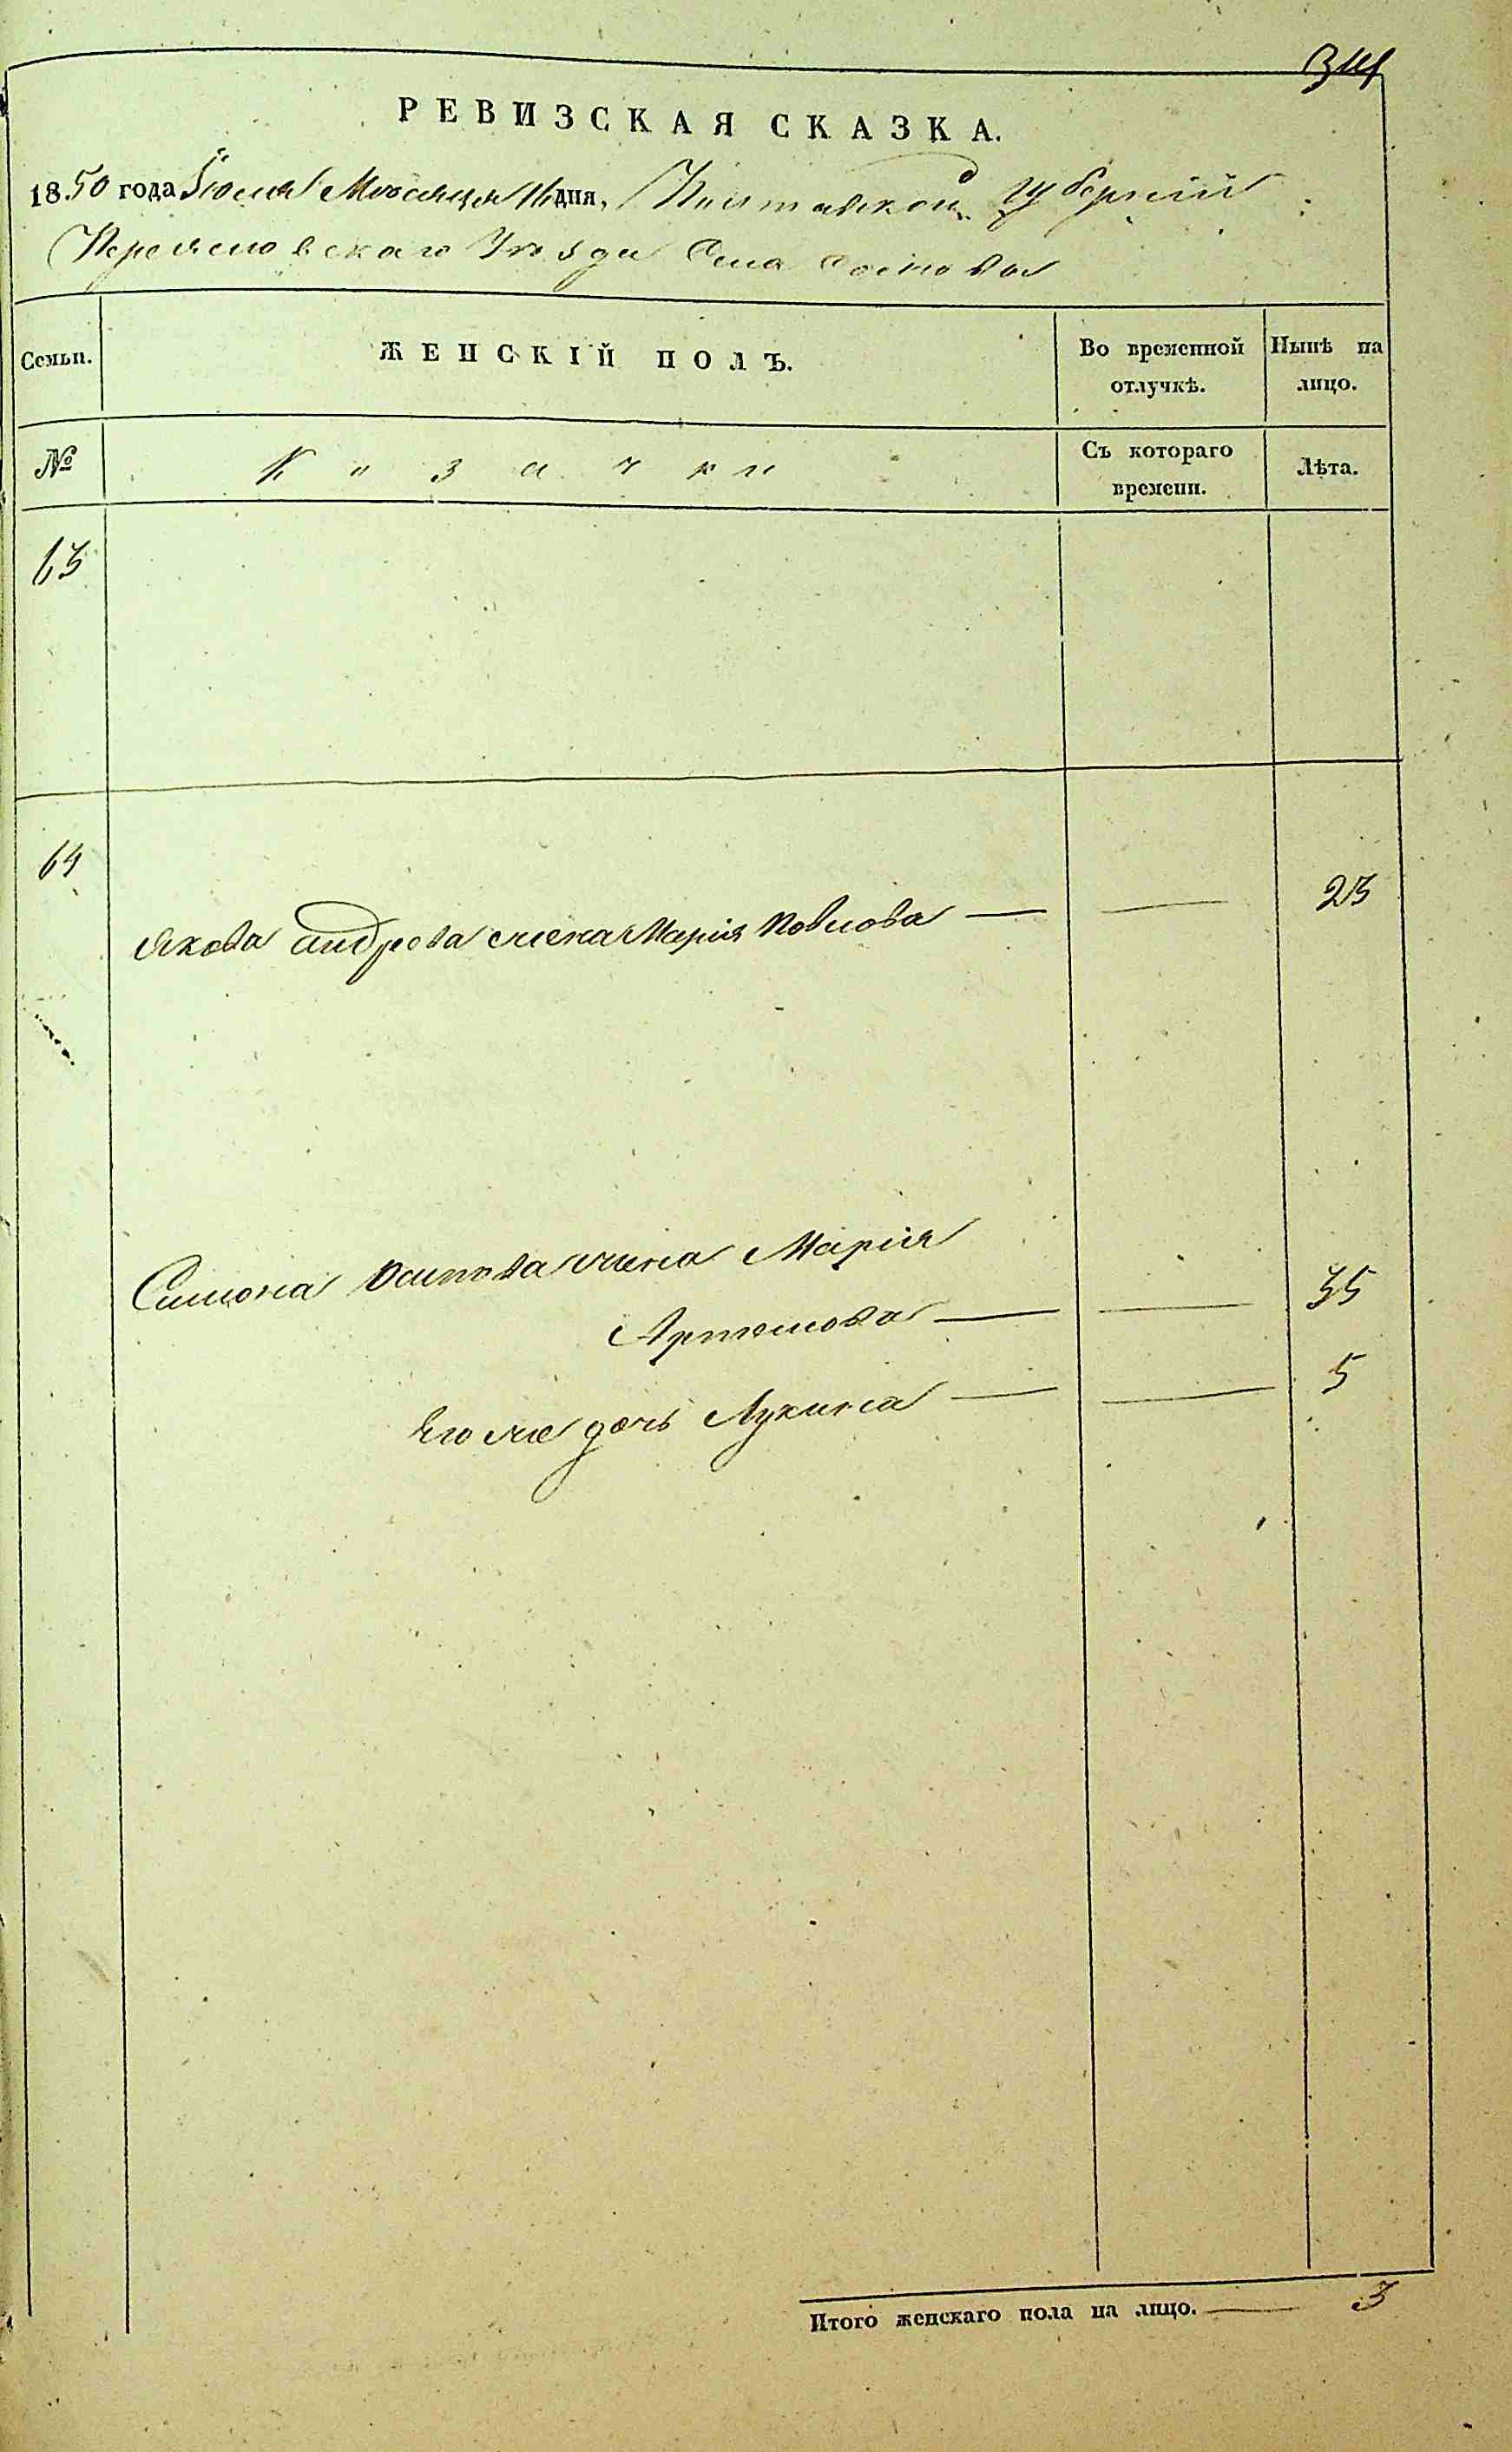 РЕВИЗСКАЯ СКАЗКА.
1850 года Іюля Мѣсяца 16 дня, Полтавской Губерніи
Переяславскаго Уѣзда Села Сосновы
Семьи. ЖЕНСКІЙ ПОЛЪ. Во временной отлучкѣ. Нынѣ на лицо.
№ Козачки Съ котораго времени. Лѣта.
63
64
Якова Андреева жена Марія Повлова — — 23
Симона Осипова жена Марія
Артемова — — 35
Его же дочь Лукина — — 5
Итого женскаго пола на лицо. — 3